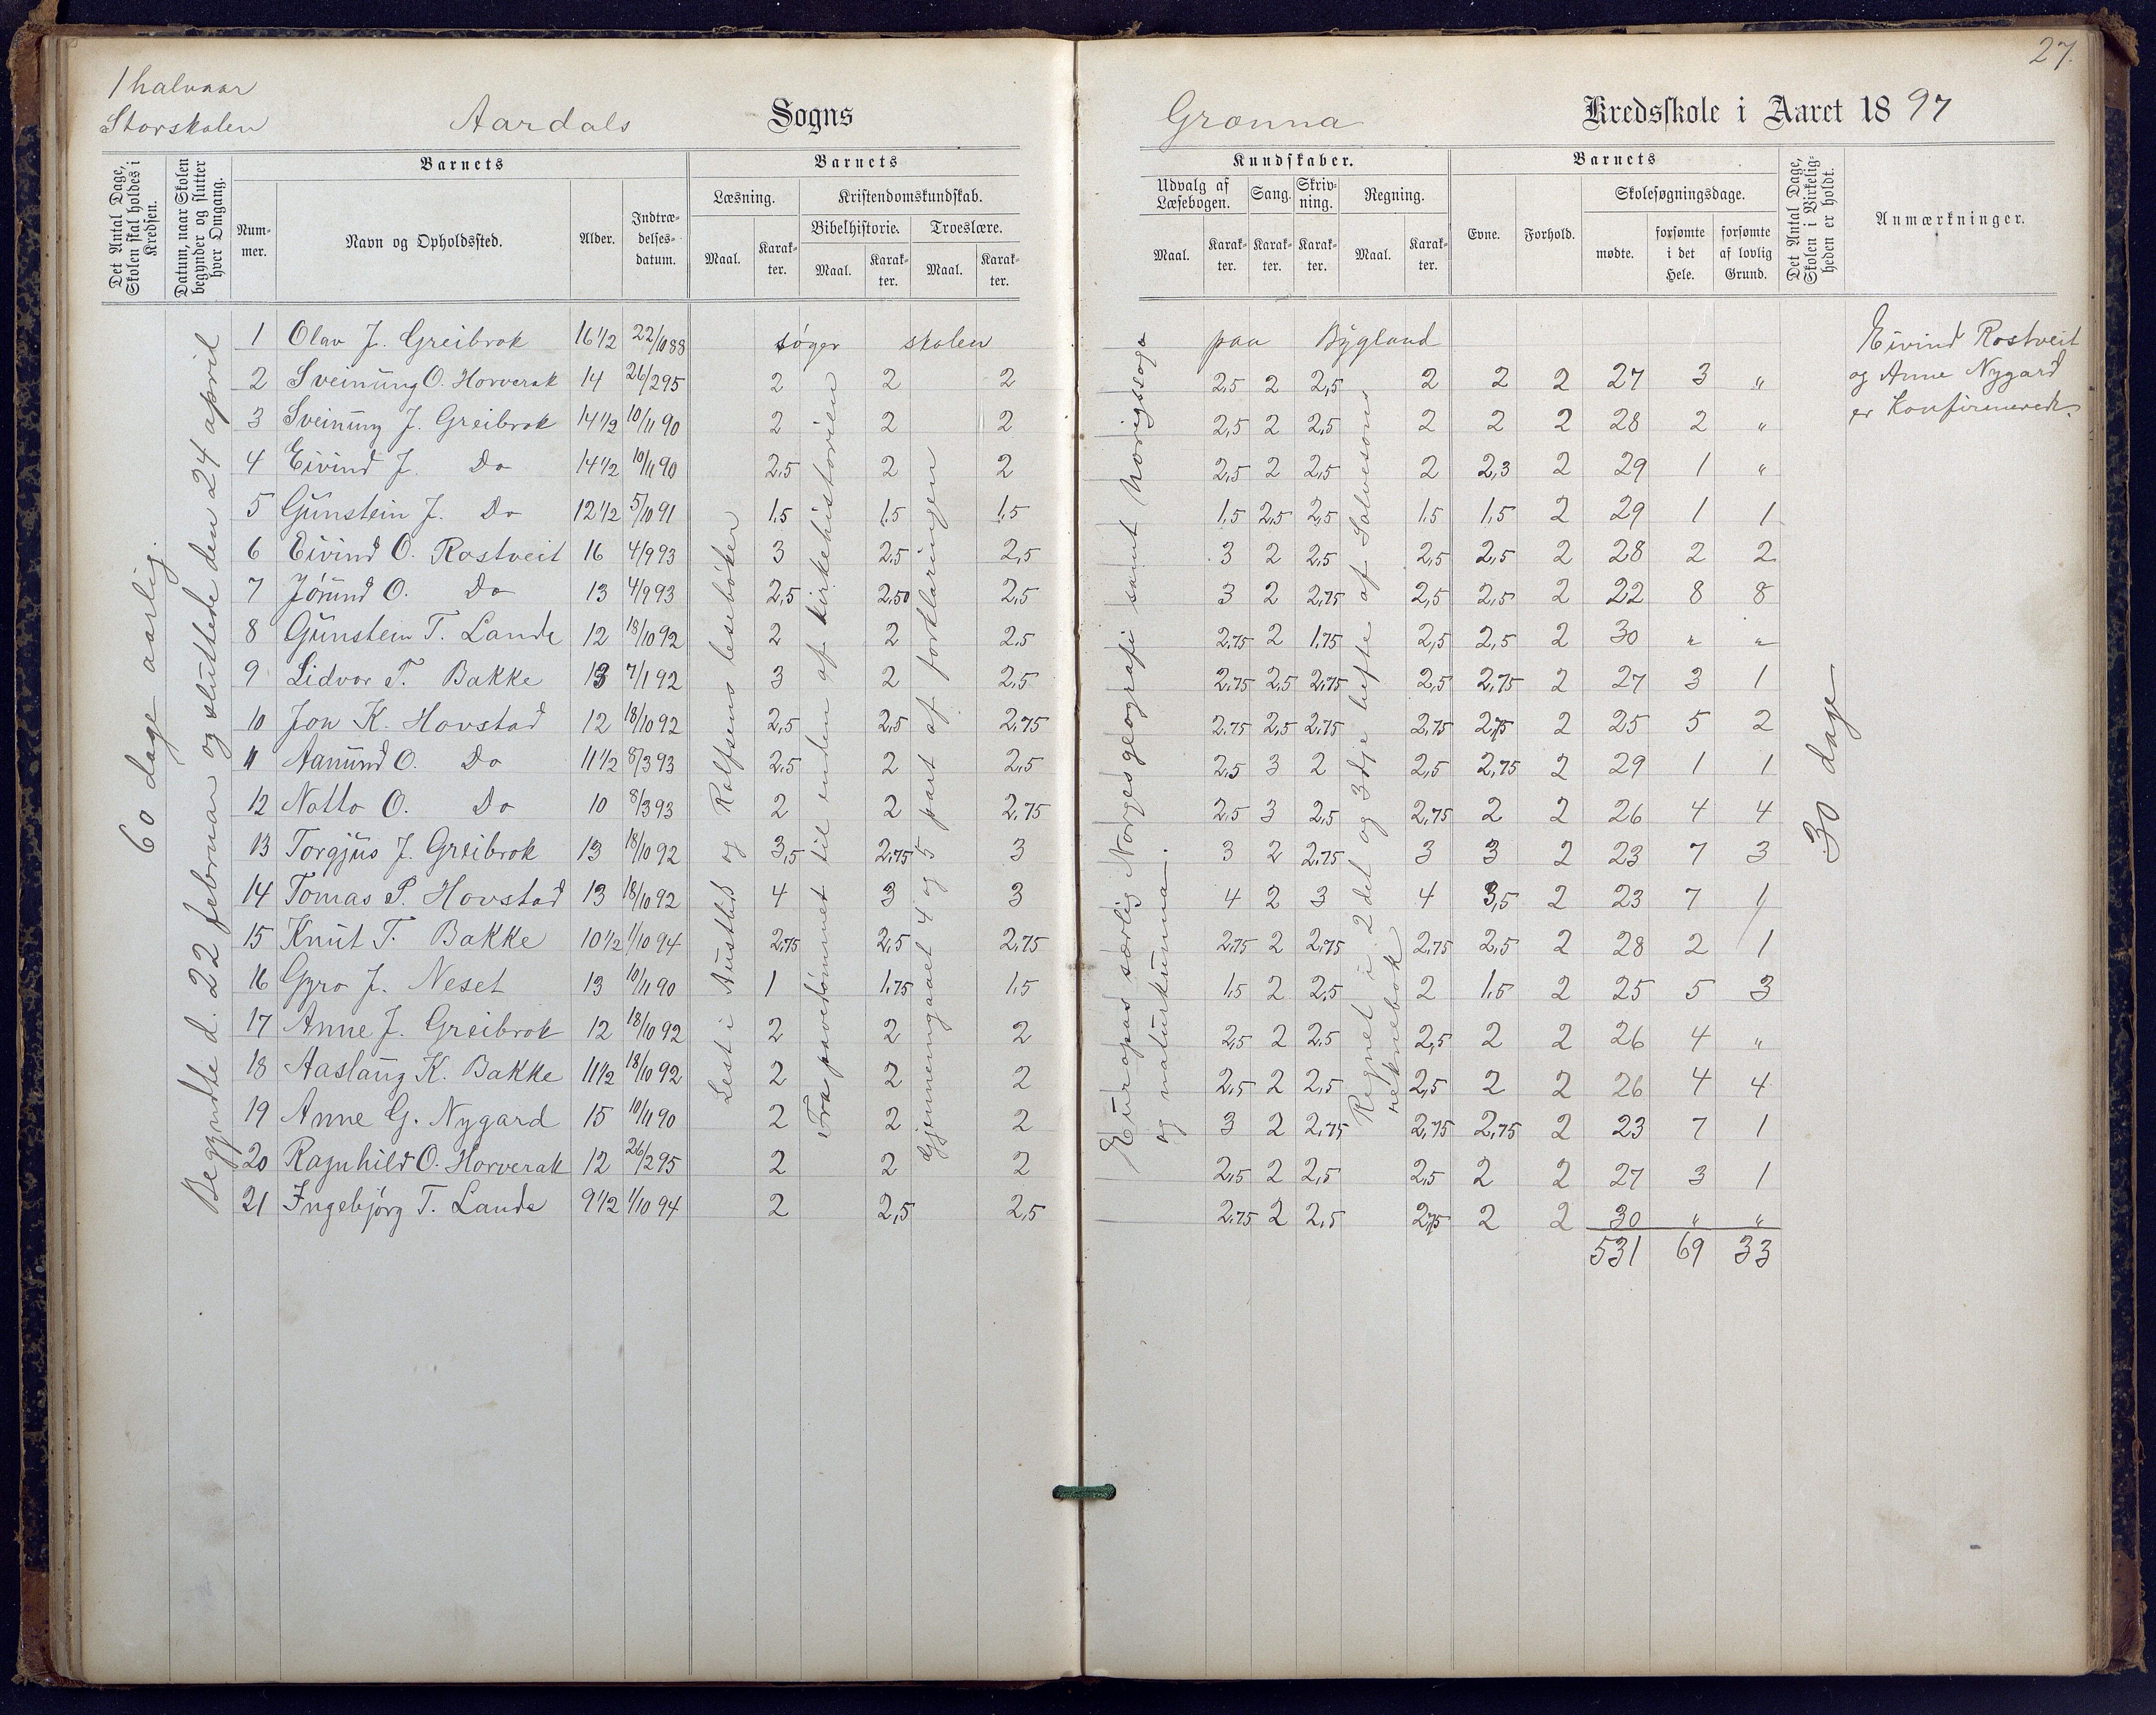 27.
1 halvaar
Storskolen
Aardals Sogns
Grönna Kredsskole i Aaret 1897
Det Antal Dage, Skolen skal holdes i Kredsen.
Datum, naar Skolen begynder og slutter hver Omgang.
Barnets
Nummer.
Navn og Opholdssted.
Alder.
Indtrædelsesdatum.
Barnets
Læsning.
Kristendomskundskab.
Bibelhistorie. Troeslære.
Maal. Karakter. Maal. Karakter. Maal. Karakter.
Kundskaber.
Udvalg af Læsebogen. Sang. Skrivning. Regning.
Maal. Karakter. Karakter. Karakter. Maal. Karakter.
Barnets
Evne. Forhold.
Skolesøgningsdage.
mødte. forsømte i det Hele. forsømte af lovlig Grund.
Det Antal Dage, Skolen i Virkeligheden er holdt.
Anmærkninger.
60 dage aarlig.
Begyndte d. 22 februar og sluttede den 24 april
Lest i Austlid og Rolfsens lesebøker
Fra pavedømmet til enden af kirkehistorien
Gjennemgaaet 4 og 5 part af forklaringen
Europas særlig Norges geografi samt Norigssoga
og naturkunna.
Regnet i 2det og 3dje hefte af Solvesons
reknebok
30 dage
1 Olav J. Greibrok 16 1/2 22/10 88 søger skolen paa Bygland
2 Sveinung O. Horverak 14 26/2 95 2 2 2 2,5 2 2,5 2 2 2 27 3 "
3 Sveinung J. Greibrok 14 1/2 10/11 90 2 2 2 2,5 2 2,5 2 2 2 28 2 "
4 Eivind J. Do 14 1/2 10/11 90 2,5 2 2 2,5 2 2,5 2 2,3 2 29 1 "
5 Gunstein J. Do 12 1/2 5/10 91 1,5 1,5 1,5 1,5 2,5 2,5 1,5 1,5 2 29 1 1
6 Eivind O. Rostveit 16 4/9 93 3 2,5 2,5 3 2 2,5 2,5 2,5 2 28 2 2
7 Jørund O. Do 13 4/9 93 2,5 2,50 2,5 3 2 2,75 2,5 2,5 2 22 8 8
8 Gunstein T. Lande 12 18/10 92 2 2 2,5 2,75 2 1,75 2,5 2,5 2 30 " "
9 Lidvor T. Bakke 13 7/1 92 3 2 2,5 2,75 2,5 2,75 2,5 2,75 2 27 3 1
10 Jon K. Hovstad 12 18/10 92 2,5 2,5 2,75 2,75 2,5 2,75 2,75 2,75 2 25 5 2
11 Aamund O. Do 11 1/2 8/3 93 2,5 2 2,5 2,5 3 2 2,5 2,75 2 29 1 1
12 Notto O. Do 10 8/3 93 2 2 2,75 2,5 3 2,5 2,75 2 2 26 4 4
13 Torgjus J. Greibrok 13 18/10 92 3,5 2,75 3 3 2 2,75 3 3 2 23 7 3
14 Tomas P. Hovstad 13 18/10 92 4 3 3 4 2 3 4 3,5 2 23 7 1
15 Knut T. Bakke 10 1/2 1/10 94 2,75 2,5 2,75 2,75 2 2,75 2,75 2,5 2 28 2 1
16 Gyro J. Neset 13 10/11 90 1 1,75 1,5 1,5 2 2,5 2 1,5 2 25 5 3
17 Anne J. Greibrok 12 18/10 92 2 2 2 2,5 2 2,5 2,5 2 2 26 4 "
18 Aaslaug K. Bakke 11 1/2 18/10 92 2 2 2 2,5 2 2,5 2,5 2 2 26 4 4
19 Anne G. Nygard 15 10/11 90 2 2 2 3 2 2,75 2,75 2,75 2 23 7 1
20 Ragnhild O. Horverak 12 26/2 95 2 2 2 2,5 2 2,5 2,5 2 2 27 3 1
21 Ingebjørg T. Lande 9 1/2 1/10 94 2 2,5 2,5 2,75 2 2,5 2,75 2 2 30 " "
531 69 33
Eivind Rostveit
og Anne Nygard
er konfirmerede.